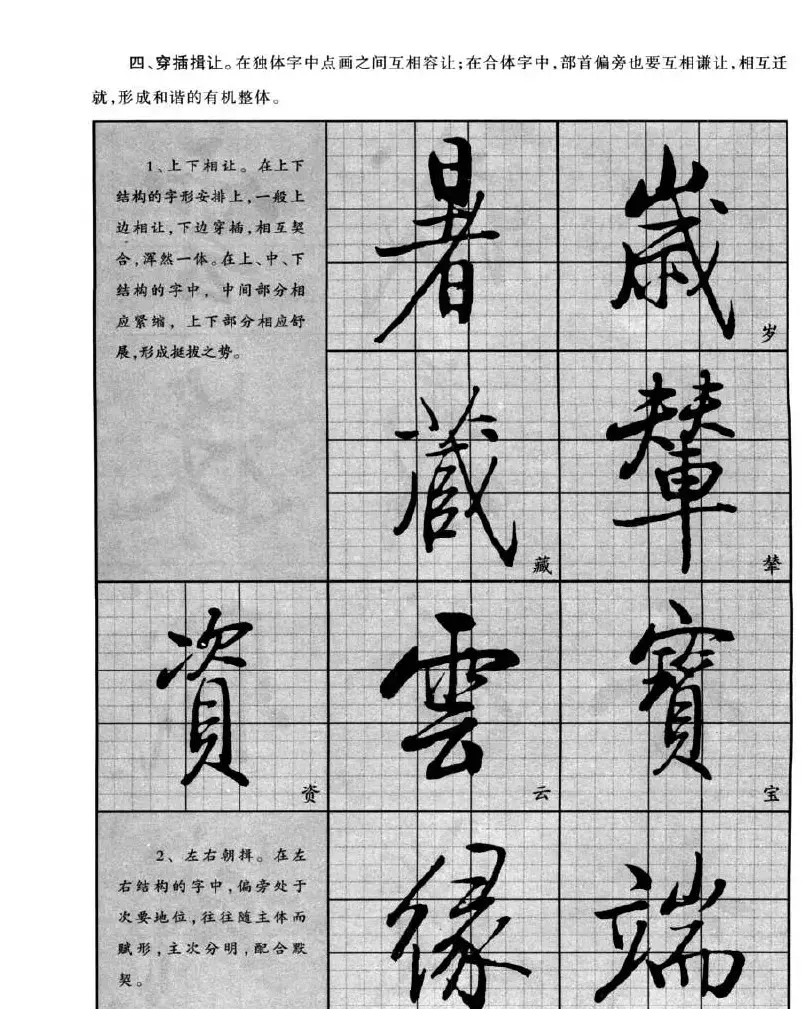 四、穿插揖让。在独体字中点画之间互相容让；在合体字中，部首偏旁也要互相谦让，相互迁
就，形成和谐的有机整体。
1、上下相让。在上下
结构的字形安排上，一般上
边相让，下边穿插，相互契
合，浑然一体。在上、中、下
结构的字中，中间部分相
应紧缩，上下部分相应舒
展，形成挺拔之势。
暑
歲
岁
蔵
藏
輦
辇
資
资
雲
云
寶
宝
2、左右朝揖。在左
右结构的字中，偏旁处于
次要地位，往往随主体而
赋形，主次分明，配合默
契。
緣
端